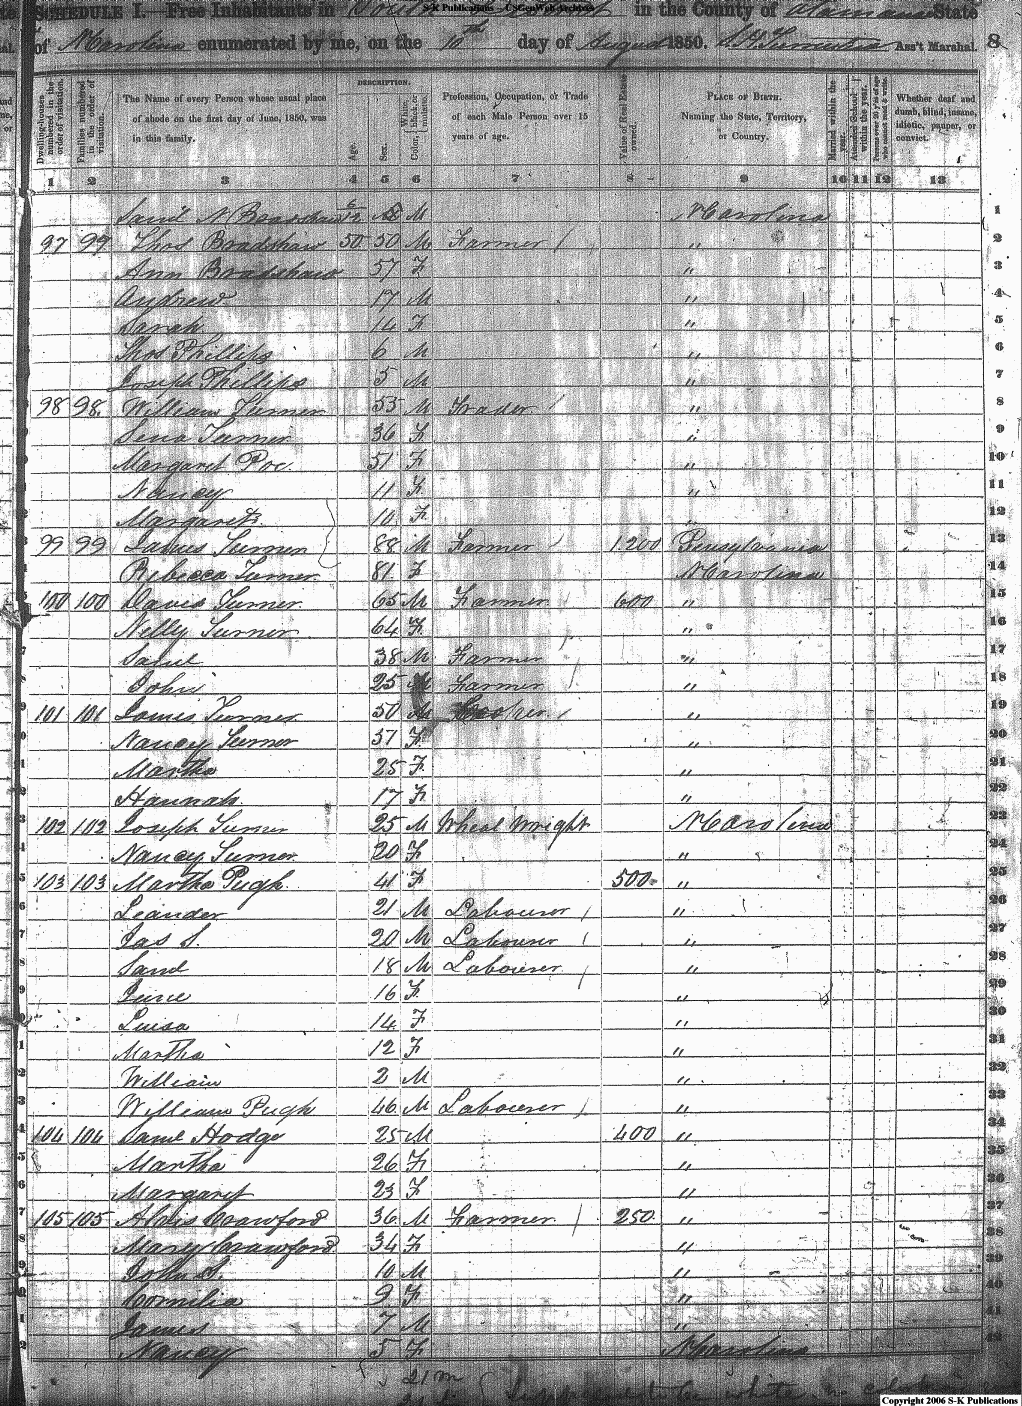 S-K Publications - USGenWeb Archives
SCHEDULE I. Free Inhabitants in South in the County of Alamance State
of N Carolina enumerated by me, on the 10th day of August 1850. Ass't Marshal. 8
Dwelling-houses numbered in the order of visitation.
Families numbered in the order of visitation.
The Name of every Person whose usual place of abode on the first day of June, 1850, was in this family.
DESCRIPTION.
Age.
Sex.
Color, White, black or mulatto.
Profession, Occupation, or Trade of each Male Person over 15 years of age.
Value of Real Estate owned.
PLACE OF BIRTH. Naming the State, Territory, or Country.
Married within the year.
Attended School within the year.
Persons over 20 y'rs of age who cannot read & write.
Whether deaf and dumb, blind, insane, idiotic, pauper, or convict.
1 2 3 4 5 6 7 8 9 10 11 12 13
Saml N Bradshaw 6/12 M N Carolina 1
97 97 Thos Bradshaw 50 50 M Farmer " 2
Ann Bradshaw 57 F " 3
Andrew 17 M " 4
Sarah 14 F " 5
Thos Phillips 6 M " 6
Joseph Phillips 5 M " 7
98 98 William Turner 55 M Trader " 8
Sena Turner 36 F " 9
Margaret Poe 51 F " 10
Nancy 11 F " 11
Margaret 10 F " 12
99 99 James Turner 88 M Farmer 1200 Pensylvania 13
Rebecca Turner 81 F N Carolina 14
100 100 Davis Turner 65 M Farmer 600 " 15
Nelly Turner 64 F " 16
Saml 38 M Farmer " 17
John 25 M Farmer " 18
101 101 James Turner 50 M Cooper " 19
Nancy Turner 57 F " 20
Martha 25 F " 21
Hannah 17 F " 22
102 102 Joseph Turner 25 M Wheal Wright N Carolina 23
Nancy Turner 20 F " 24
103 103 Martha Pugh 41 F 500 " 25
Leander 21 M Labourer " 26
Jas S. 20 M Labourer " 27
Saml 18 M Labourer " 28
June 16 F " 29
Luisa 14 F " 30
Martha 12 F " 31
William 2 M " 32
William Pugh 46 M Labourer " 33
104 104 Saml Hodge 25 M 400 " 34
Martha 26 F " 35
Margaret 23 F " 36
105 105 Crawford 36 M Farmer 250 " 37
Mary Crawford 34 F " 38
John S. 10 M " 39
Cornelia 9 F " 40
James 7 M " 41
Nancy 5 F N Carolina 42
21 m
Copyright 2006 S-K Publications